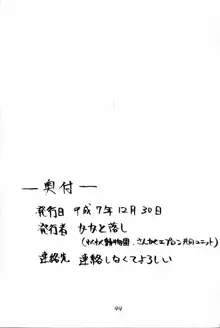 —奥付—
発行日 平成7年12月30日
発行者 ななと落し
(わくわく動物園、さんかくエプロン共同ユニット)
連絡先 連絡しなくてよろしい
44